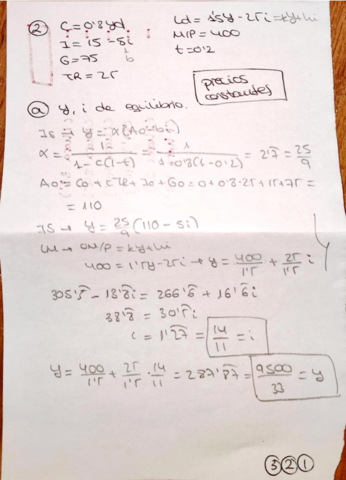 ② C = 0'8yd
I = 15 - 5i
G = 75
TR = 25
Ld = 1'5y - 25i = ky + hi
M/P = 400
t = 0'2
precios constantes
ⓐ y, i de equilibrio.
IS → y = α(A0 - bi)
α = 1/(1 - c(1-t)) = 1/(1 - 0'8(1 - 0'2)) = 2'7̂ = 25/9
A0 = C0 + cTR + I0 + G0 = 0 + 0'8·25 + 15 + 75 =
= 110
IS → y = 25/9 (110 - 5i)
LM → M/P = ky + hi
400 = 1'5y - 25i → y = 400/1'5 + 25/1'5 i
305'5̂ - 13'8̂i = 266'6̂ + 16'6̂i
38'8̂ = 30'5i
i = 1'27̂ = 14/11 = i
y = 400/1'5 + 25/1'5 · 14/11 = 287'87̂ = 9500/33 = y
③②①